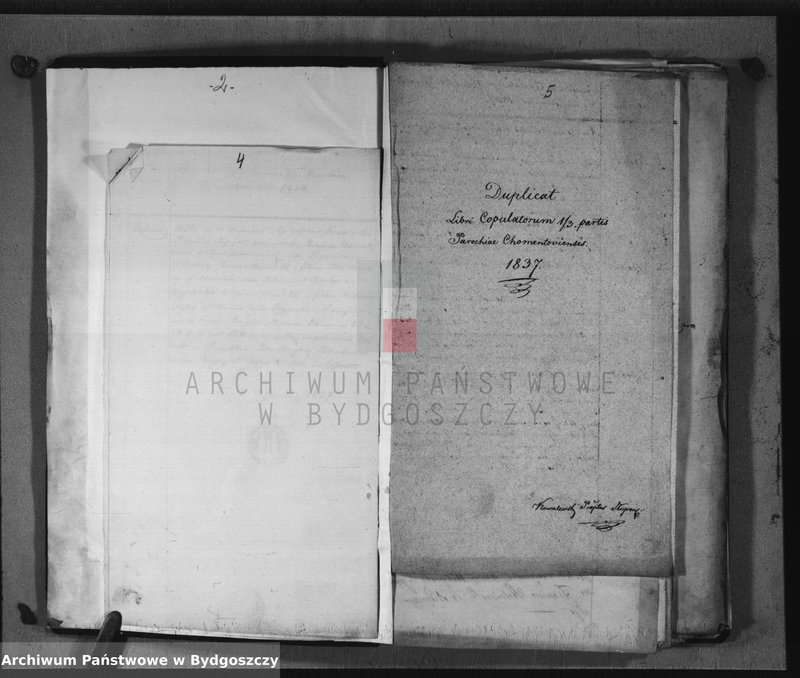 -2-
4
5
Duplicat
Libri Copulatorum 1/3. partis
Parochiae Chomentoviensis.
1837.
Kowalewski
ARCHIWUM PAŃSTWOWE
W BYDGOSZCZY
Archiwum Państwowe w Bydgoszczy